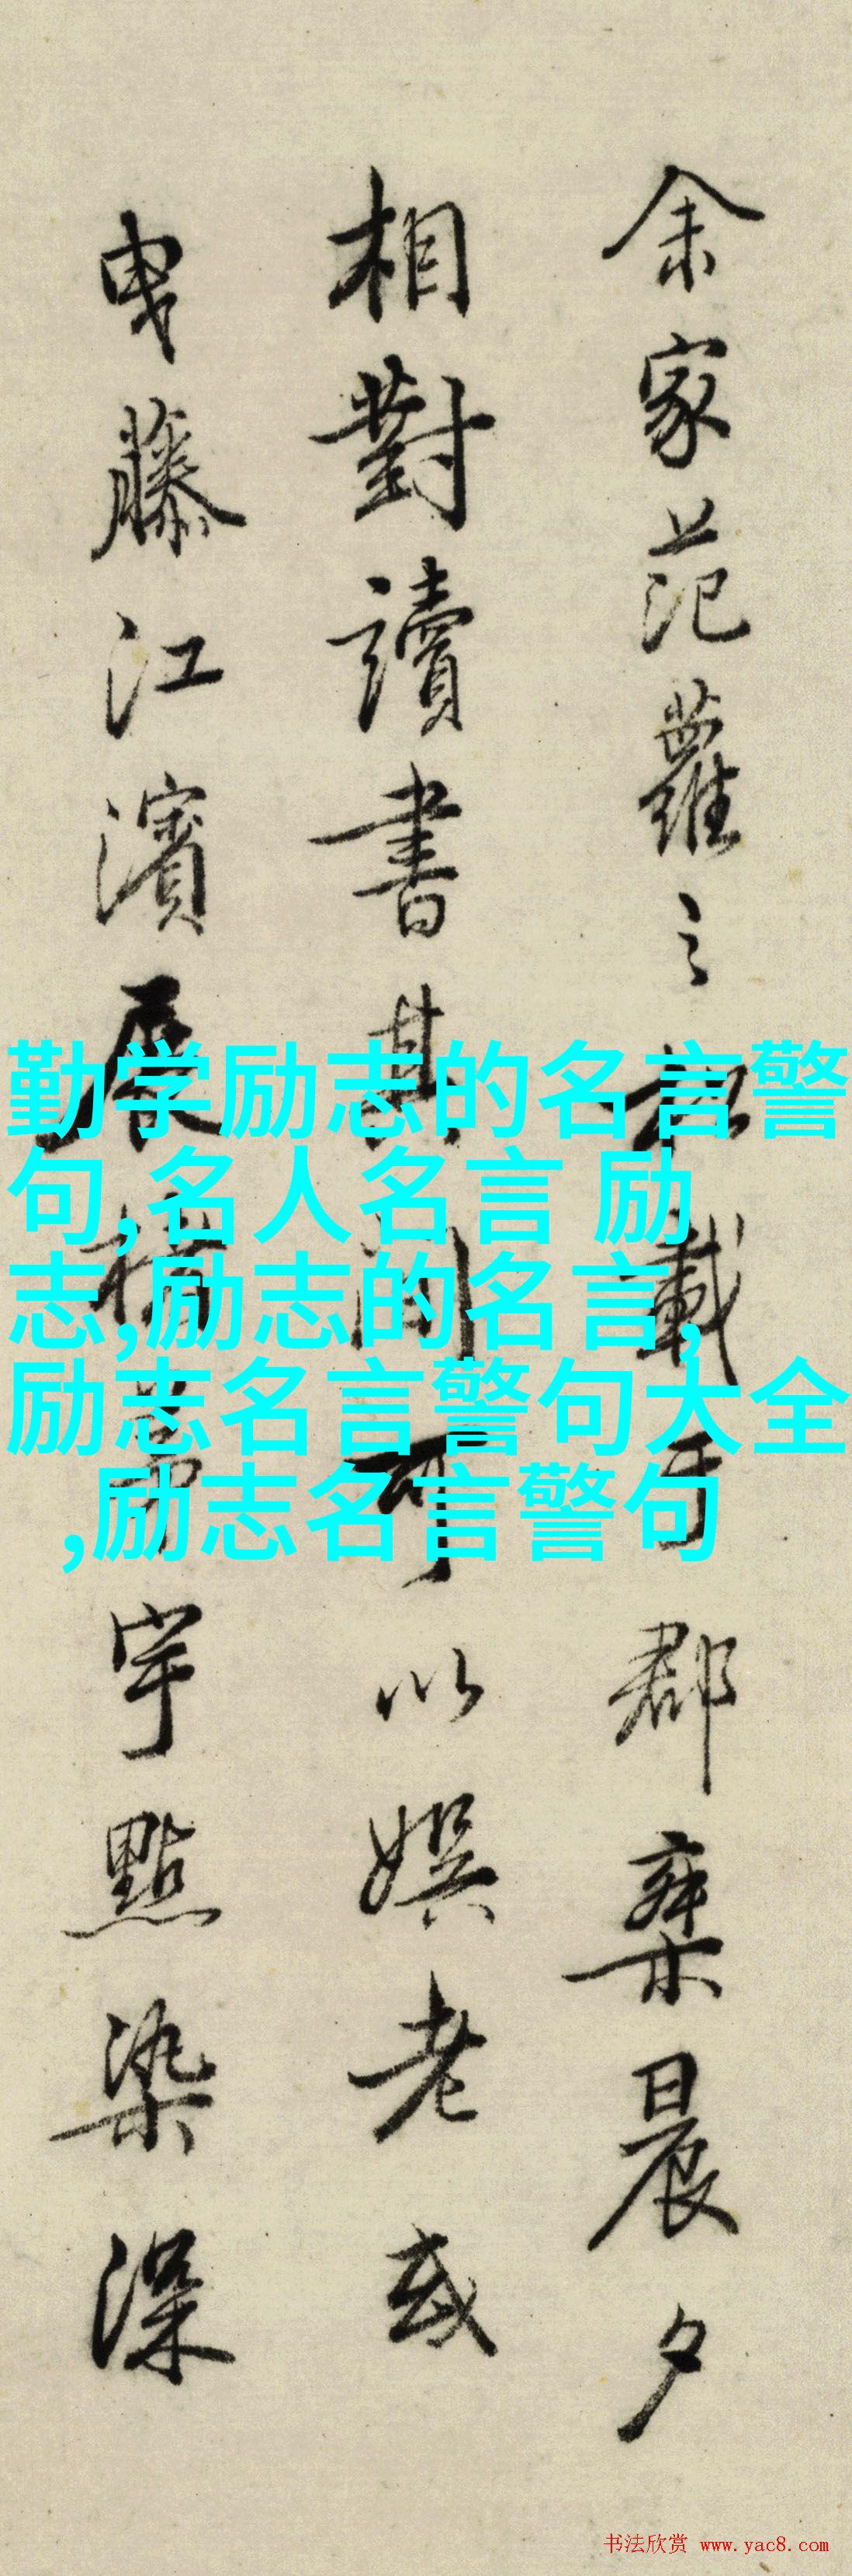 余家范蘿之松載于郡乘晨夕
相對讀書其間可以娱老或
曳藤江濱展楮草字點染深
勤学励志的名言警
句,名人名言 励
志,励志的名言,
励志名言警句大全
,励志名言警句
书法欣赏 www.yac8.com